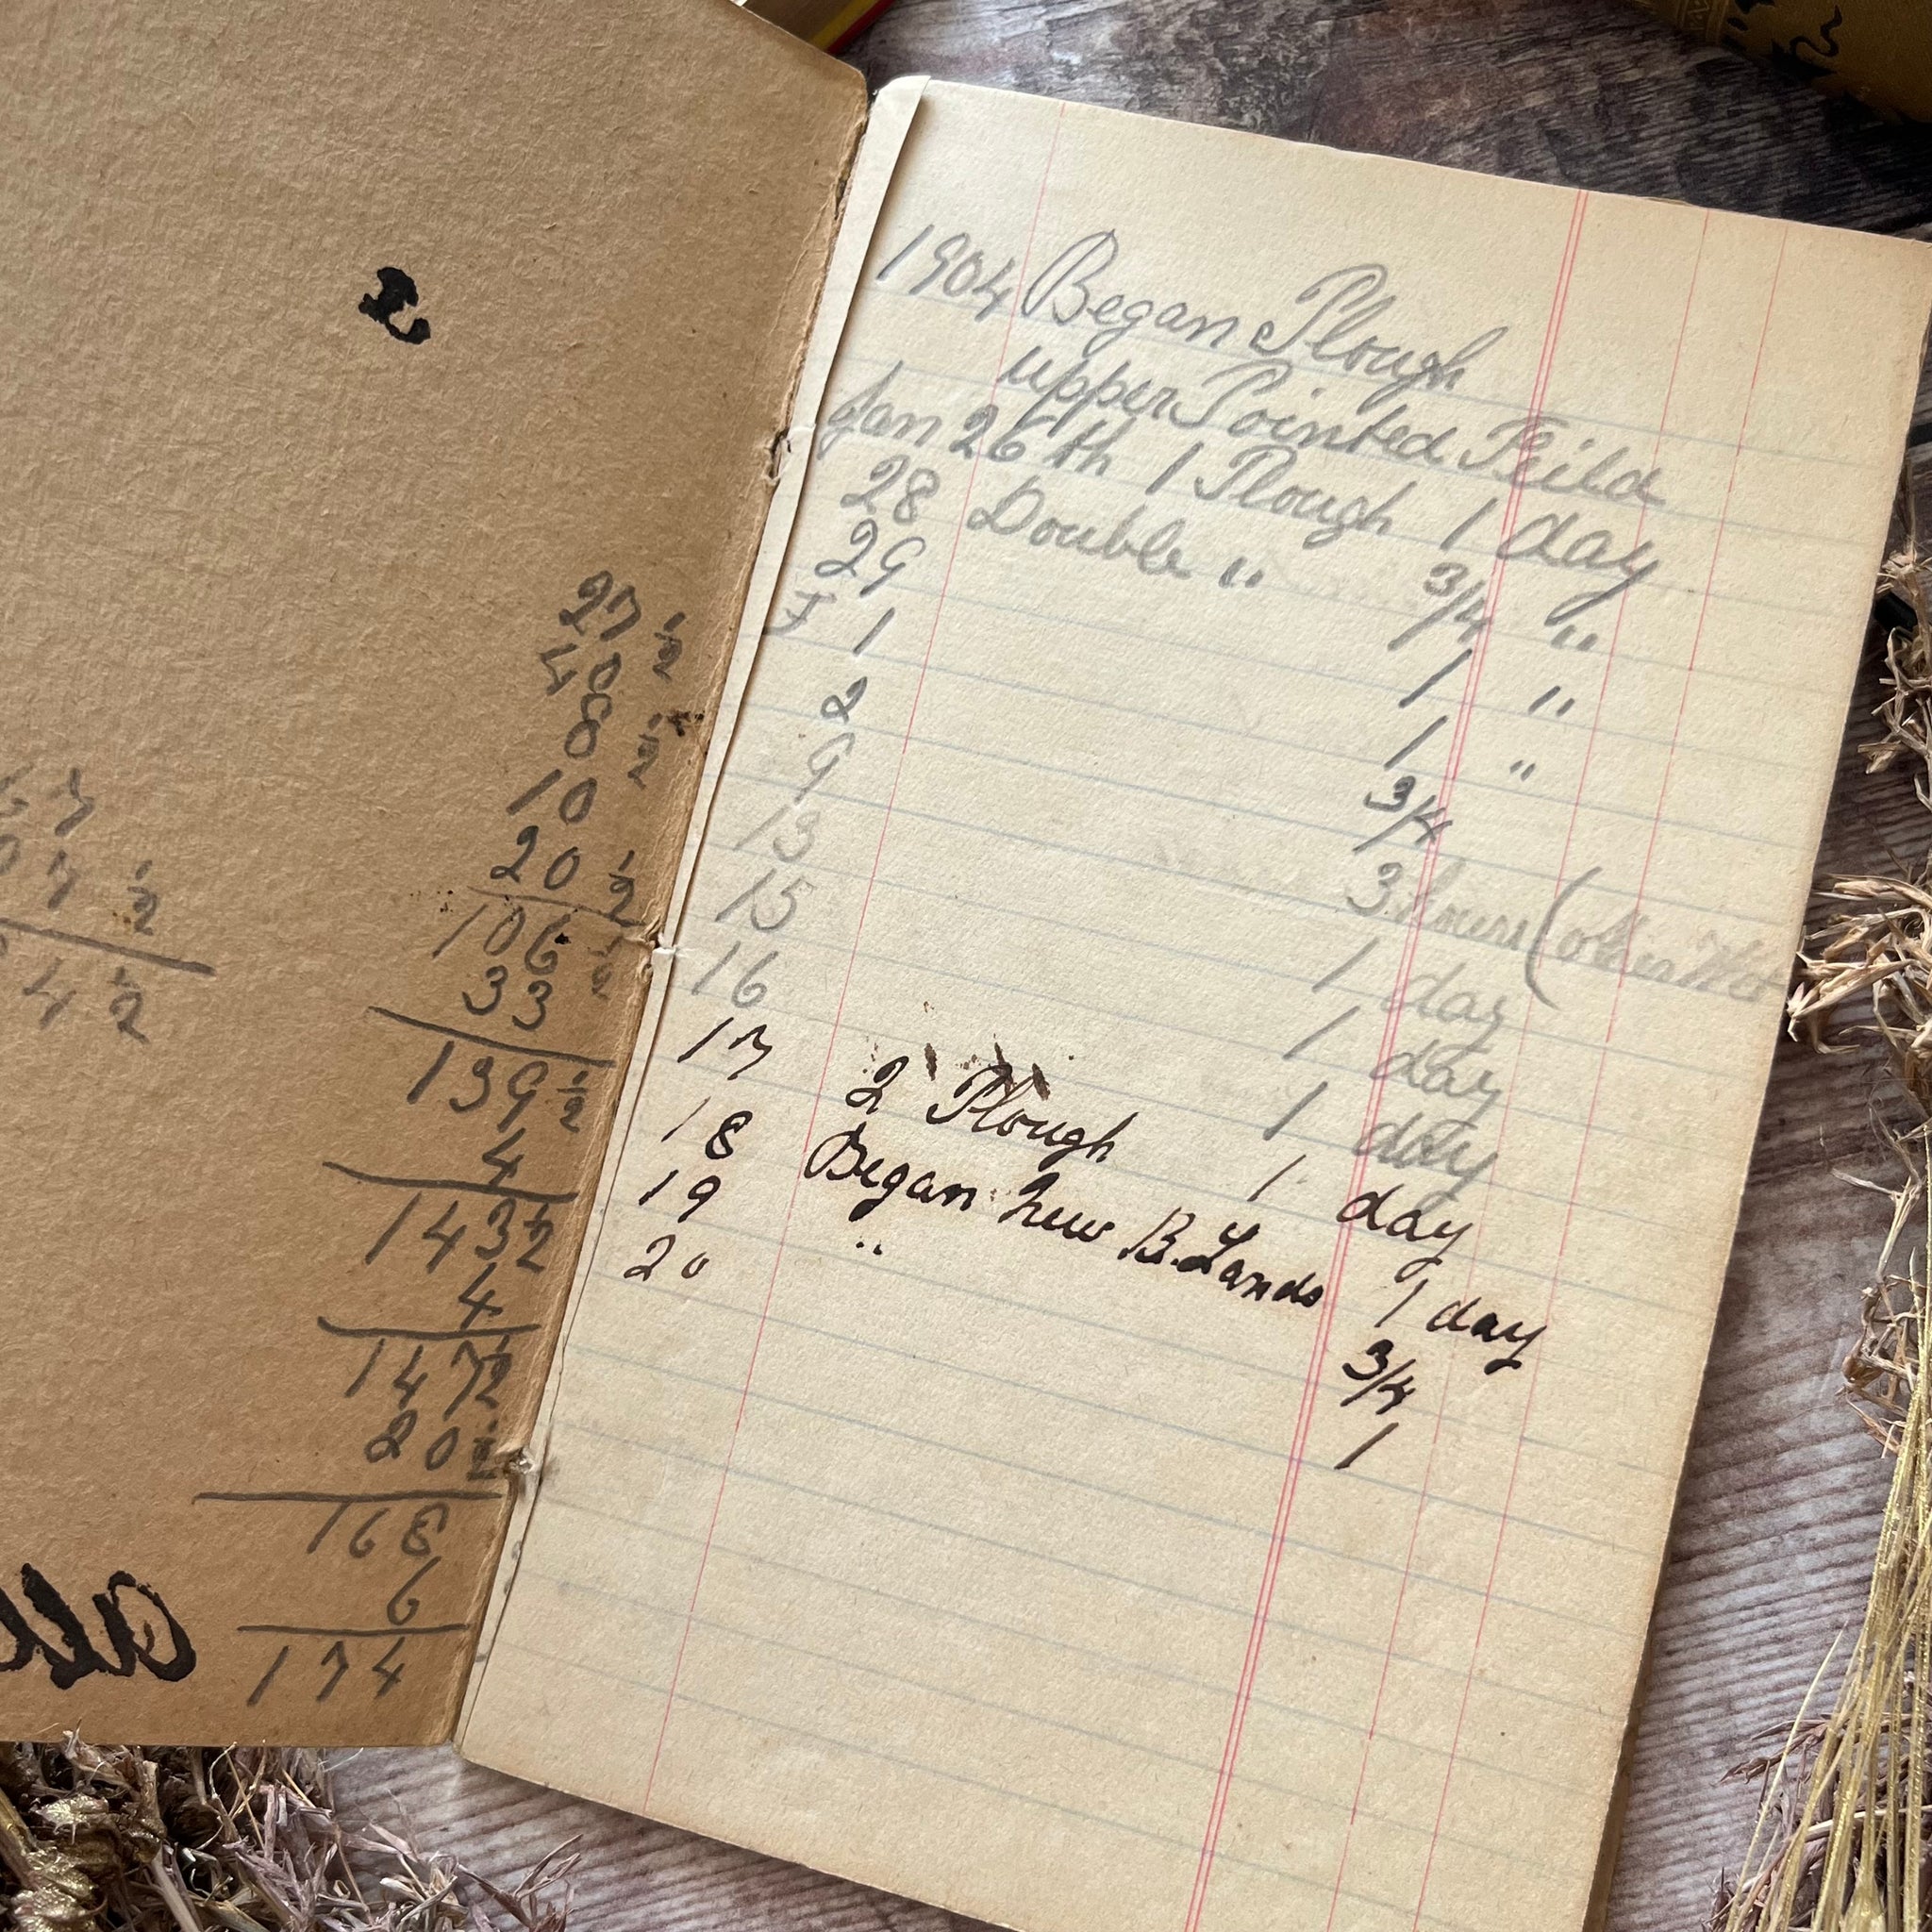 27 1/2
40
8 1/2
10
20 1/2
106 1/2
33
139 1/2
4
143 1/2
4
147 1/2
20 1/2
168
6
174
7
7 1/2
4 1/2
1904 Began Plough
upper Pointed Feild
Jan 26th 1 Plough 1 day
28 Double " 3/4 "
29 1 "
F 1 1 "
2 3/4
9 3 hours (other
13 1 day
15 1 day
16 1 day
17 2 Plough 1 day
18 Began New B. Lands 1 day
19 " 3/4
20 1